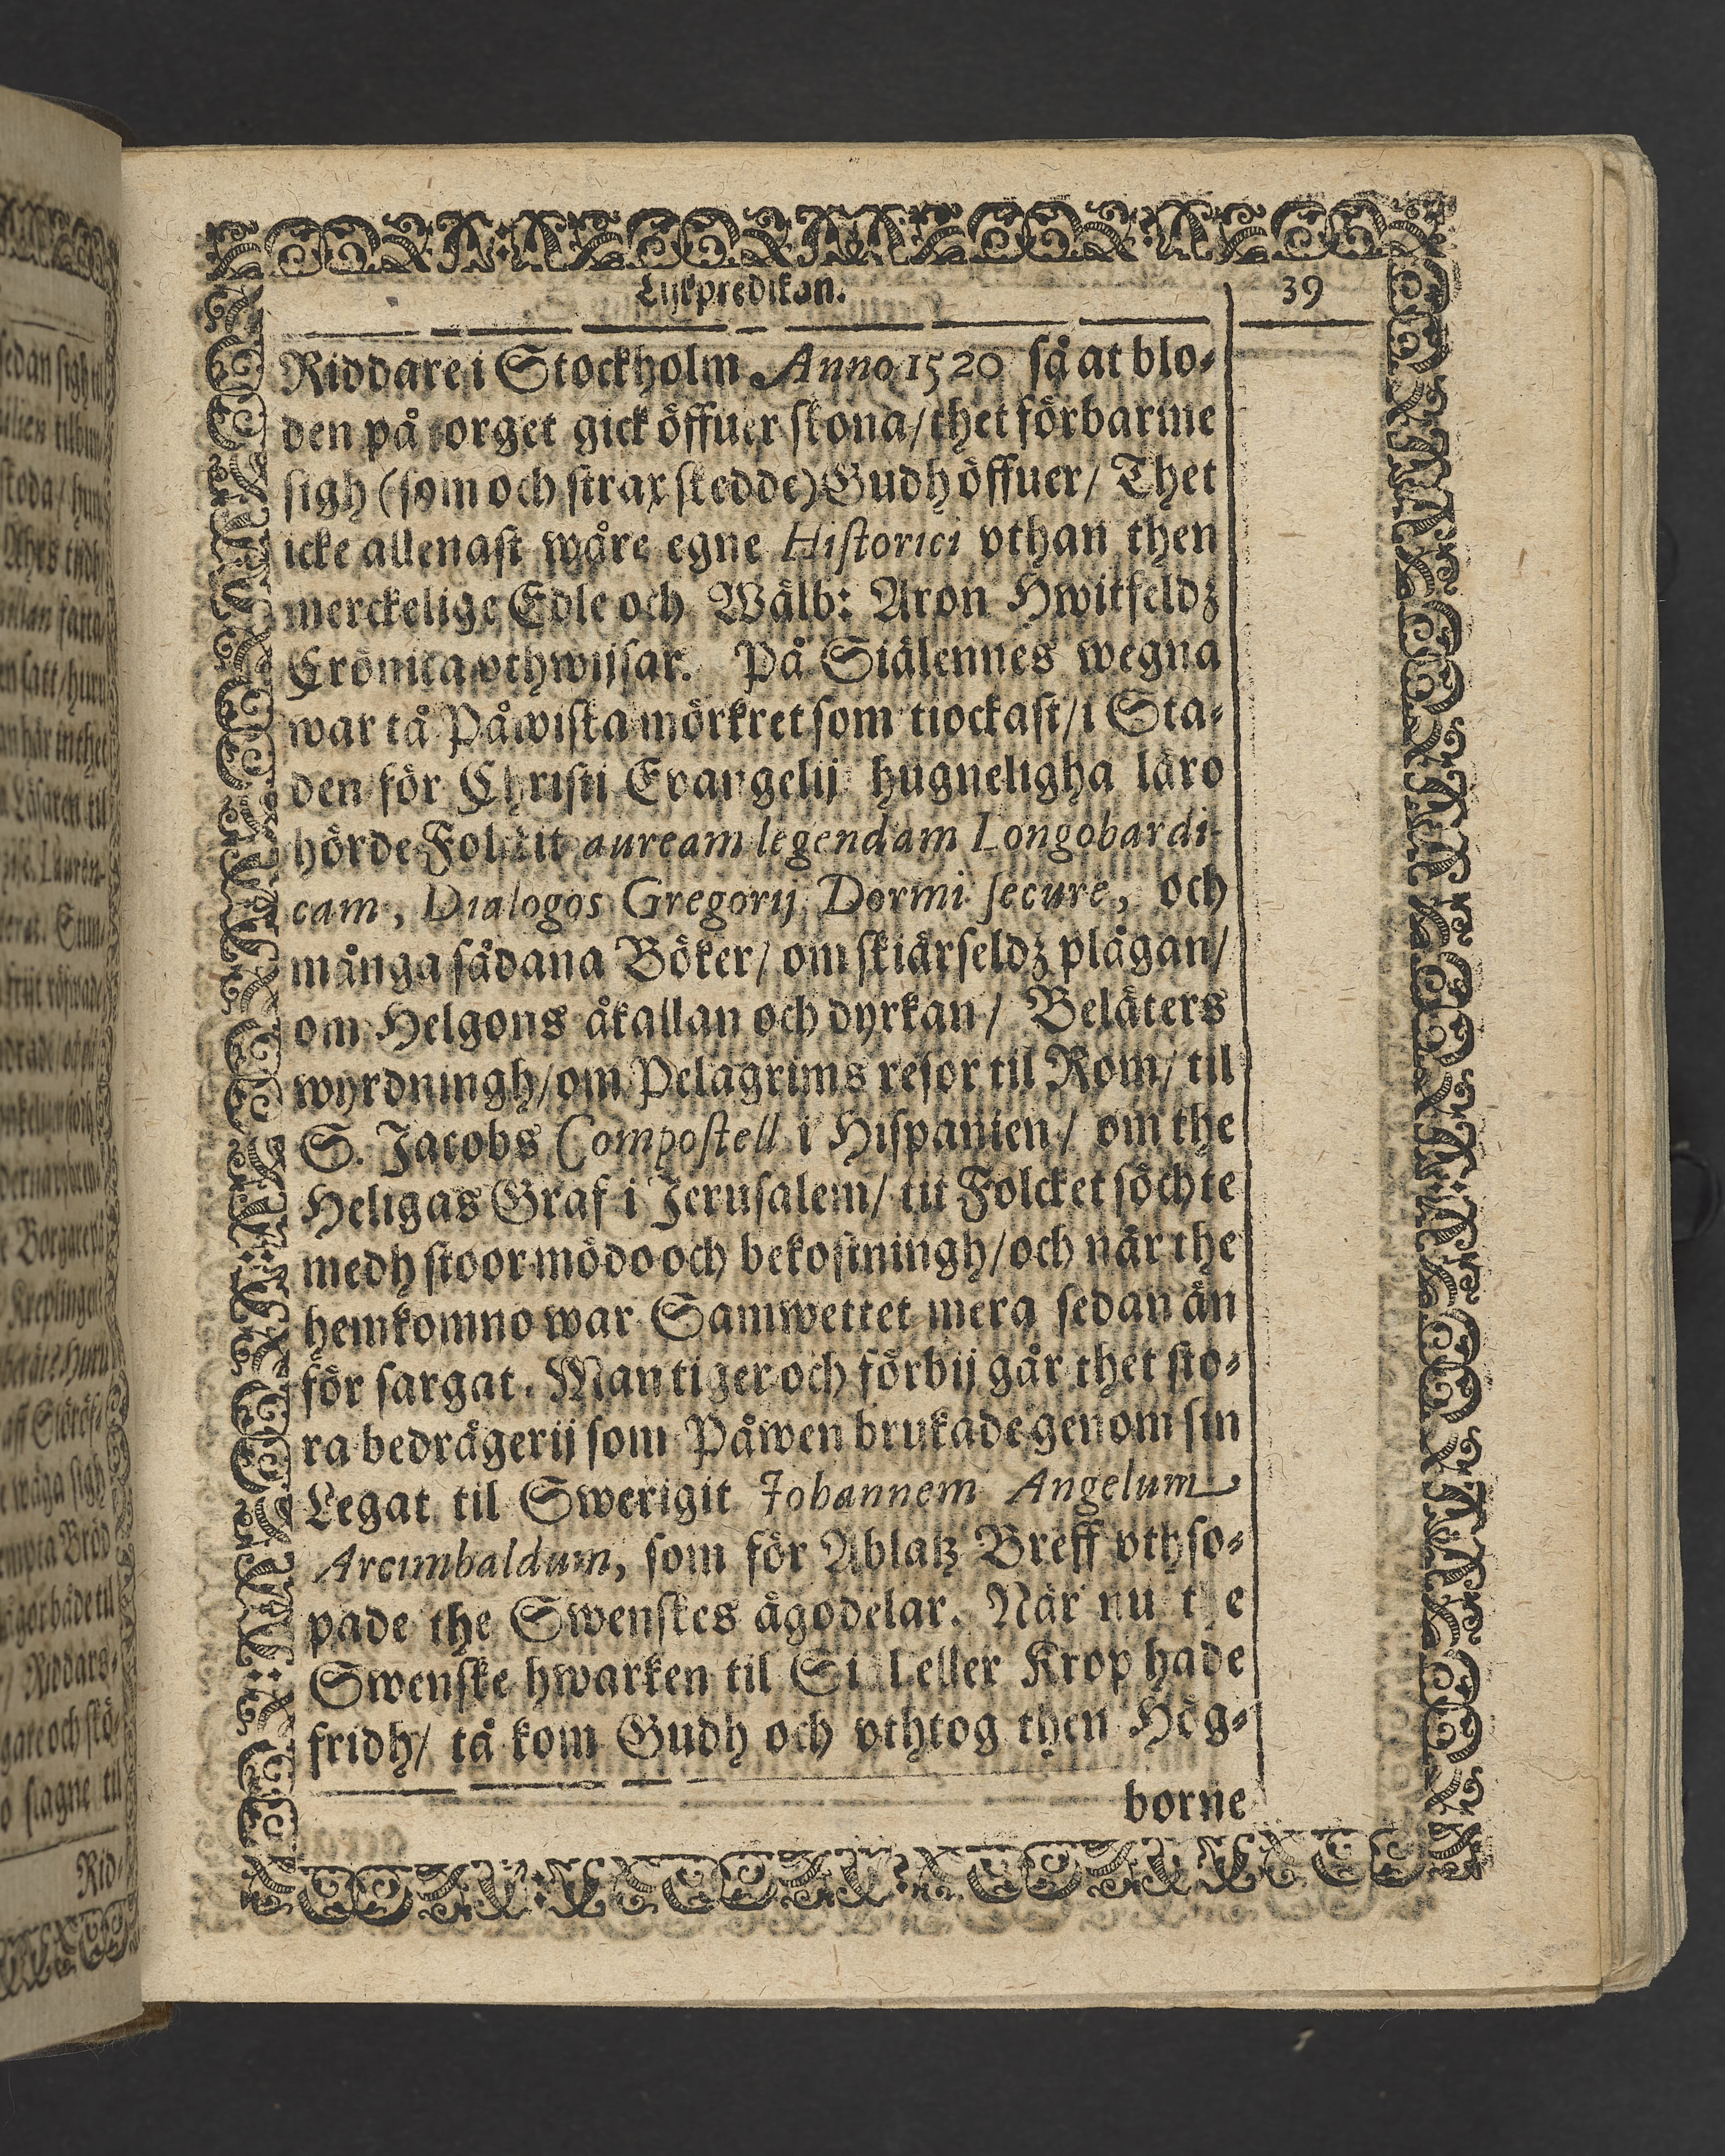 Lijkpredikan. 39
Riddare i Stockholm Anno 1520 så at blo-
den på torget gick öffuer skona/thet förbarme
sigh (som och strax skedde) Gudh öffuer/ Thet
icke allenast wåre egne Historici vthan then
merckelige Edle och Wälb: Aron Hwitfeldz
Crönica vthwijsar. På Siälennes wegna
war tå Påwiska mörkret som tiockast/i Sta-
den för Christi Evangelij hugneligha läro
hörde Folckit auream legendam Longobardi-
cam, Dialogos Gregorij Dormi secure, och
många sådana Böker/ om skiärseldz plågan/
om Helgons åkallan och dyrkan/ Beläters
wyrdningh/om Pelagrims resor til Rom/ til
S. Jacobs Compostell i Hispanien/ om the
Heligas Graf i Jerusalem/ tit Folcket söchte
medh stoor mödo och bekostningh/och när the
hemkomno war Samwettet mera sedan än
för sargat. Man tiger och förbij går thet sto-
ra bedrägerij som Påwen brukade genom sin
Legat til Swerigit Johannem Angelum
Arcimbaldum, som för Ablatz Breff vthso-
pade the Swenskes ägodelar. När nu the
Swenske hwarken til Siäl eller Krop hade
fridh/ tå kom Gudh och vthtog then Hög-
borne